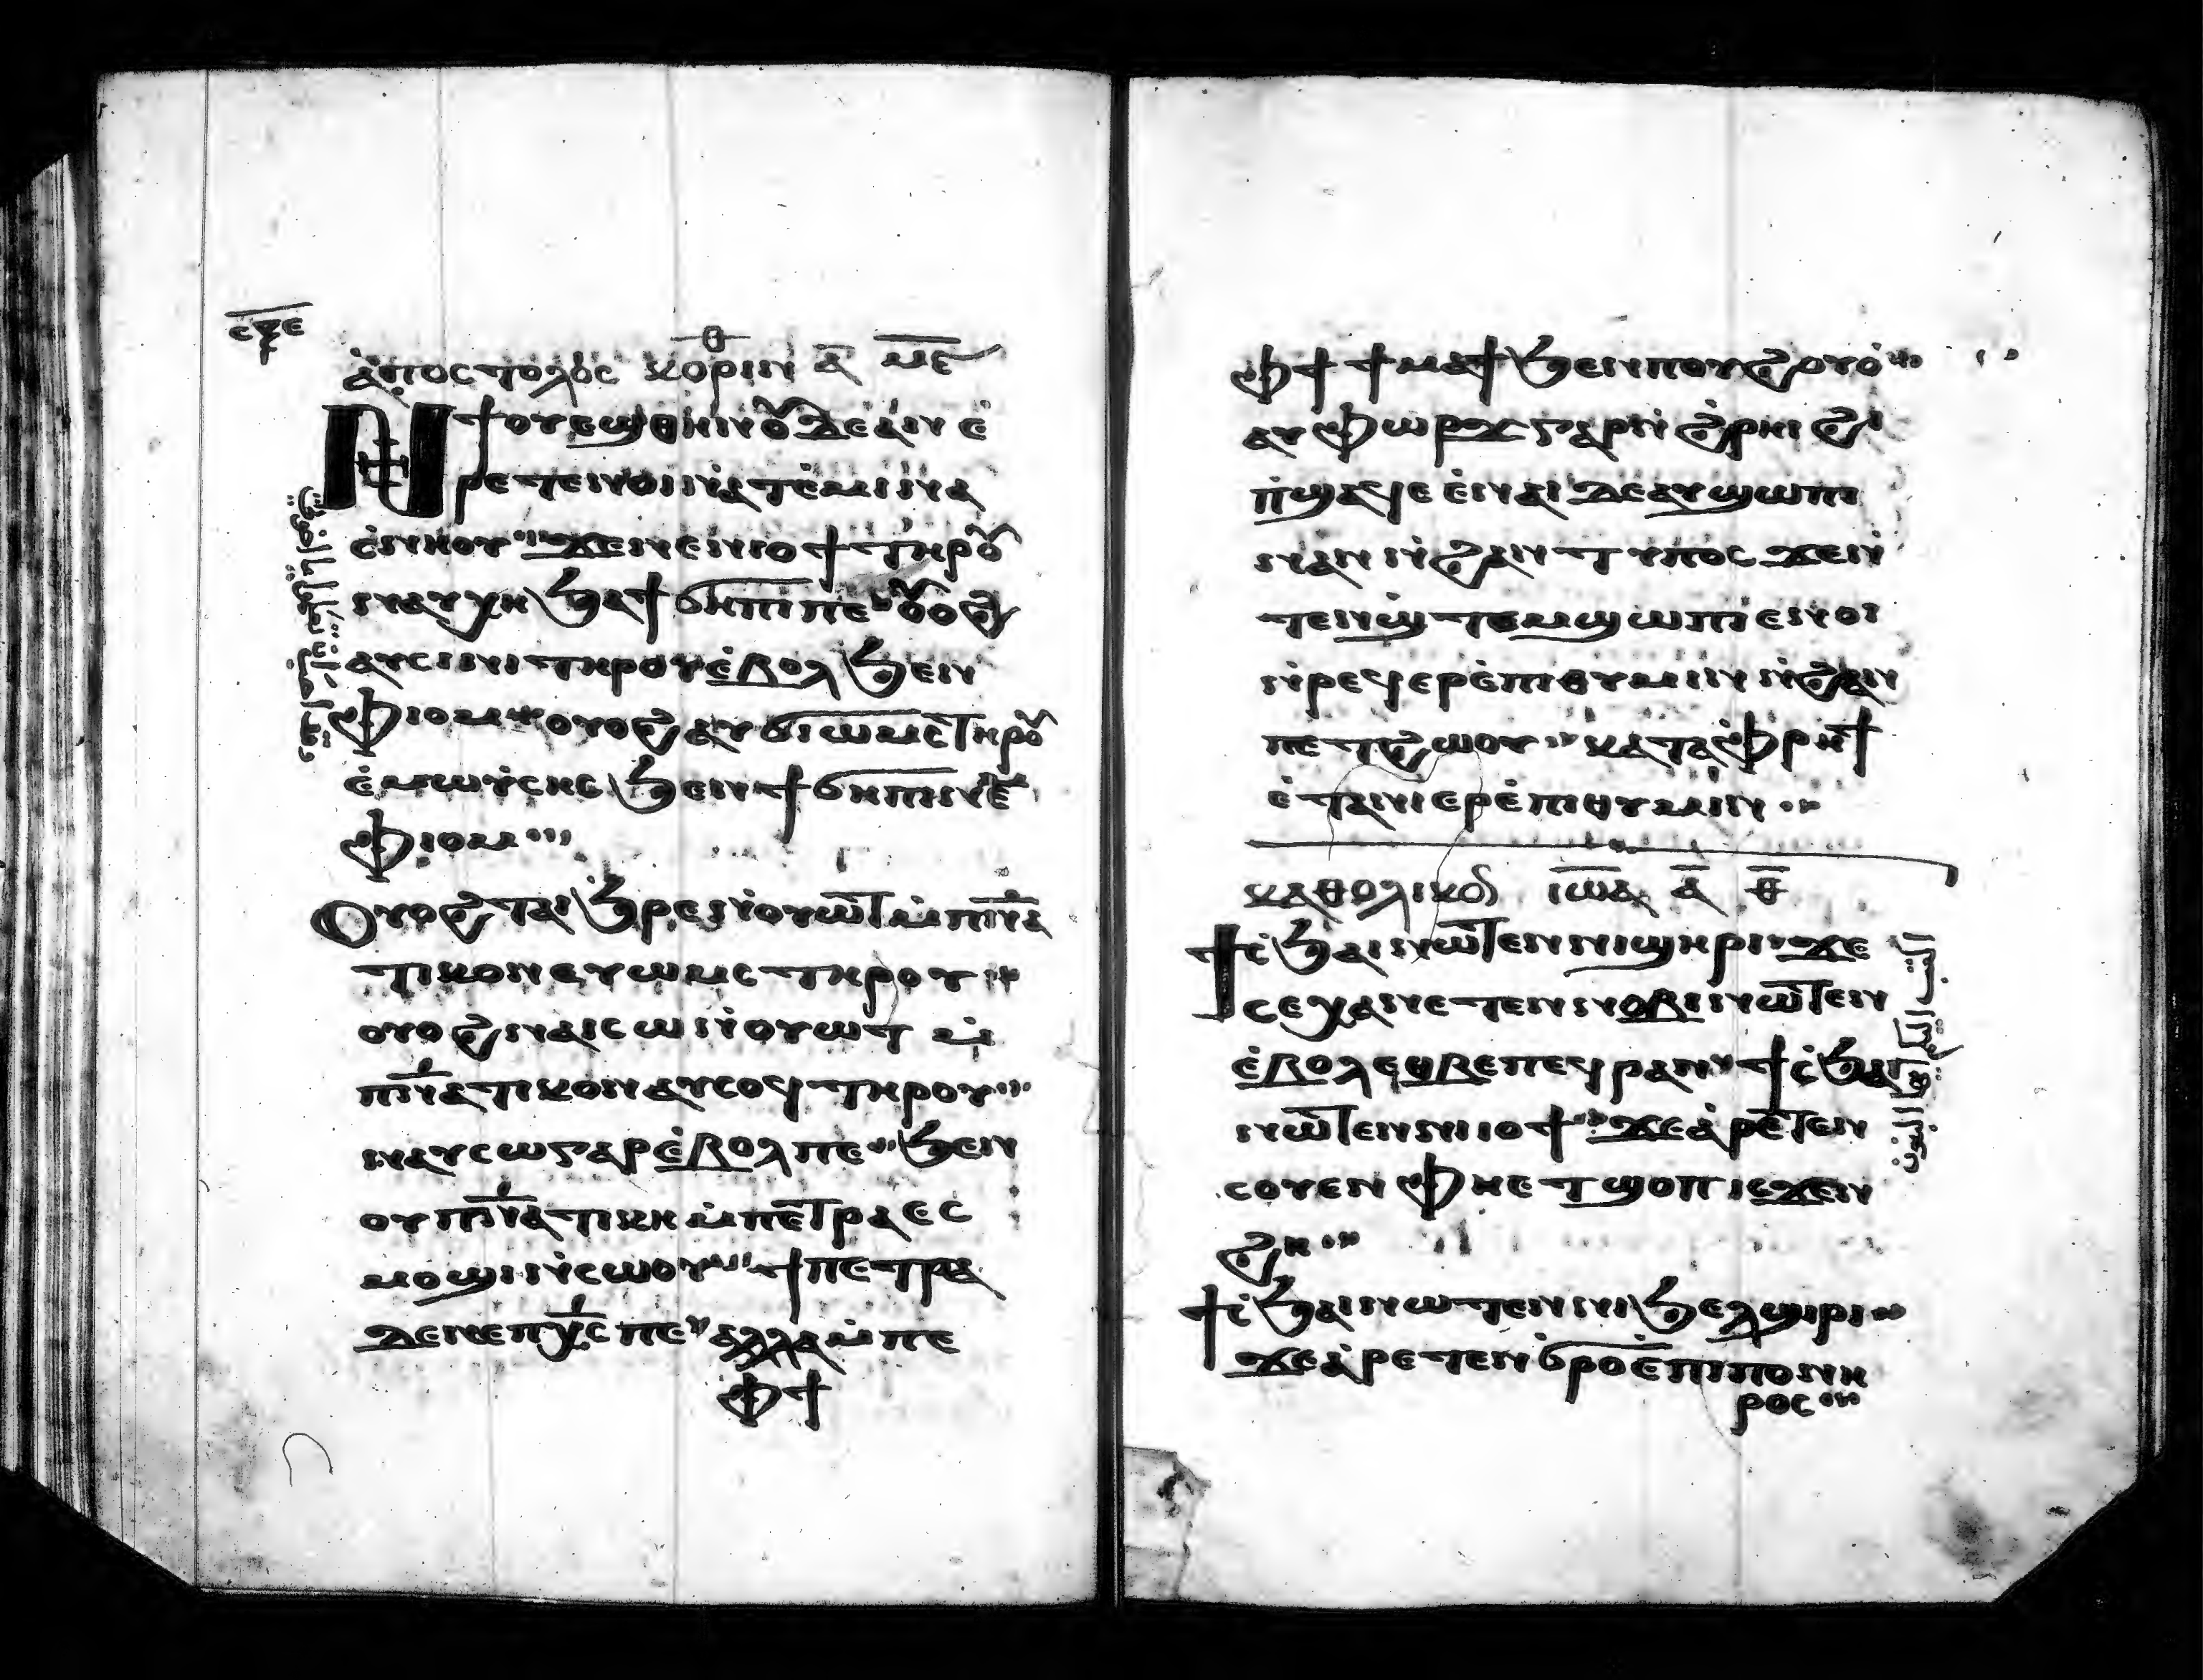 ⲥⲝⲉ
ⲁ̀ⲡⲟⲥⲧⲟⲗⲟⲥ ⲕⲟⲣⲓⲛ ⲑ ⲁ̅ ⲙⲉ̅
Ⲛϯⲟⲩⲉϣⲑⲏⲛⲟⲩ ⲇⲉ ⲁⲛ ⲉ̀
ⲣⲉⲧⲉⲛⲟⲓ ⲛ̀ⲁⲧⲉ̀ⲙⲓ ⲛⲁ
ⲥ̀ⲛⲏⲟⲩ ϫⲉ ⲛⲉⲛⲓⲟϯ ⲧⲏⲣⲟⲩ
ⲛⲁⲩⲭⲏ ϧⲁ ϯϭⲏⲡⲓ ⲡⲉ ⲟⲩⲟϩ
ⲁⲩⲥⲓⲛⲓ ⲧⲏⲣⲟⲩ ⲉ̀ⲃⲟⲗ ϧⲉⲛ
ⲫⲓⲟⲙ ⲟⲩⲟϩ ⲁⲩϭⲓⲱⲙⲥ ⲧⲏⲣⲟⲩ
ⲉ̀ⲙⲱⲩ̀ⲥⲏⲥ ϧⲉⲛ ϯϭⲏⲡⲓ ⲛⲉⲙ
ⲫⲓⲟⲙ
Ⲟⲩⲟϩ ⲧⲁⲓ ϧⲣⲉ ⲛ̀ⲟⲩⲱⲧ ⲙ̀ⲡ̅ⲛ̅ⲁ̅
ⲧⲓⲕⲟⲛ ⲉⲩⲱⲙⲥ ⲧⲏⲣⲟⲩ
ⲟⲩⲟϩ ⲛⲁⲓ ⲥⲱ ⲛ̀ⲟⲩⲱⲧ ⲙ̀
ⲡ̅ⲛ̅ⲁⲧⲓⲕⲟⲛ ⲁⲩⲥⲟϥ ⲧⲏⲣⲟⲩ
ⲛⲁⲩⲥⲱ ⲅⲁⲣ ⲉ̀ⲃⲟⲗ ⲡⲉ ϧⲉⲛ
ⲟⲩⲡ̅ⲛ̅ⲁⲧⲓⲕⲏ ⲙ̀ⲡⲉⲧⲣⲁ ⲉⲥ
ⲙⲟϣⲓ ⲛ̀ⲥⲱⲟⲩ ϯⲡⲉⲧⲣⲁ
ⲇⲉ ⲛⲉ ⲡⲭ̅ⲥ̅ ⲡⲉ ⲁⲗⲗⲁ ⲙ̀ⲡⲉ
ⲫϯ
ⲫϯ ϯⲙⲁϯ ϧⲉⲛ ⲡⲟⲩϩⲟⲩⲟ̀
ⲁⲩⲫⲱⲣϫ ⲅⲁⲣ ⲛ̀ϩ̀ⲣⲏⲓ ϩⲓ
ⲡ̀ϣⲁϥⲉ ⲉ̀ⲛⲁⲓ ⲇⲉ ⲁⲩϣⲱⲡⲓ
ⲛⲁⲛ ⲛ̀ϩⲁⲛⲧⲩⲡⲟⲥ ϫⲉⲛ
ⲧⲉⲛϣⲧⲉⲙϣⲱⲡⲓ ⲉⲛⲟⲓ
ⲛ̀ⲣⲉϥⲉⲣⲉ̀ⲡⲓⲑⲩⲙⲓⲛ ⲛ̀ϩⲁⲛ
ⲡⲉⲧϩⲱⲟⲩ ⲕⲁⲧⲁ ⲫⲣⲏϯ
ⲉ̀ⲧⲁⲛⲓⲉⲣⲉ̀ⲡⲓⲑⲩⲙⲓⲛ
ⲕⲁⲑⲟⲗⲓⲕⲟⲛ ⲓⲱ̅ⲁ ⲁ̅ ⲑ̅
ϯⲥ̀ϧⲁⲓ ⲛⲱⲧⲉⲛ ⲛⲓϣⲏⲣⲓ ϫⲉ
ⲥⲉⲭⲁ ⲛⲉⲧⲉⲛⲛⲟⲃⲓ ⲛⲱⲧⲉⲛ
ⲉ̀ⲃⲟⲗ ⲉⲑⲃⲉ ⲡⲉϥⲣⲁⲛ ϯⲥ̀ϧⲁⲓ
ⲛⲱⲧⲉⲛ ⲛⲓⲓⲟϯ ϫⲉ ⲁ̀ⲣⲉⲧⲉⲛ
ⲥⲟⲩⲉⲛ ⲫⲏⲉⲧϣⲟⲡ ⲓⲥϫⲉⲛ
ϩⲏ
ϯⲥ̀ϧⲁⲓ ⲛⲱⲧⲉⲛ ⲛⲓϧⲉⲗϣⲓⲣⲓ
ϫⲉ ⲁ̀ⲣⲉⲧⲉⲛϭ̀ⲣⲟ ⲉ̀ⲡⲓⲡⲟⲛⲏ
ⲣⲟⲥ